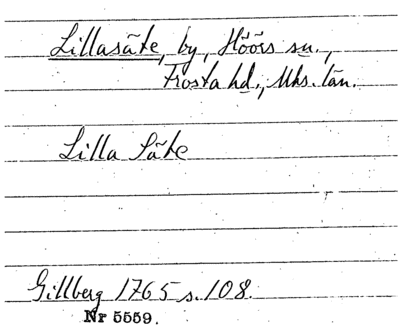 Lillasäte, by, Höörs sn.,
Frosta hd., Mhs. län.
Lilla Säte
Gillberg 1765 s. 108.
Nr 5559.